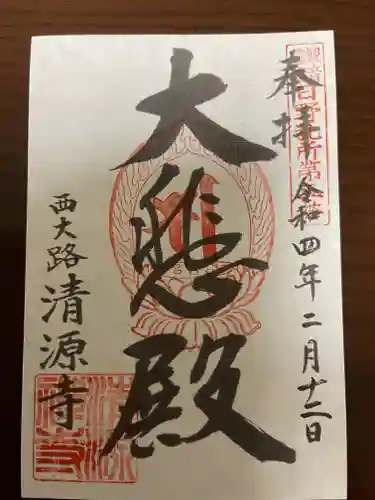 奉拝
令和四年二月十二日
大悲殿
西大路
清源寺